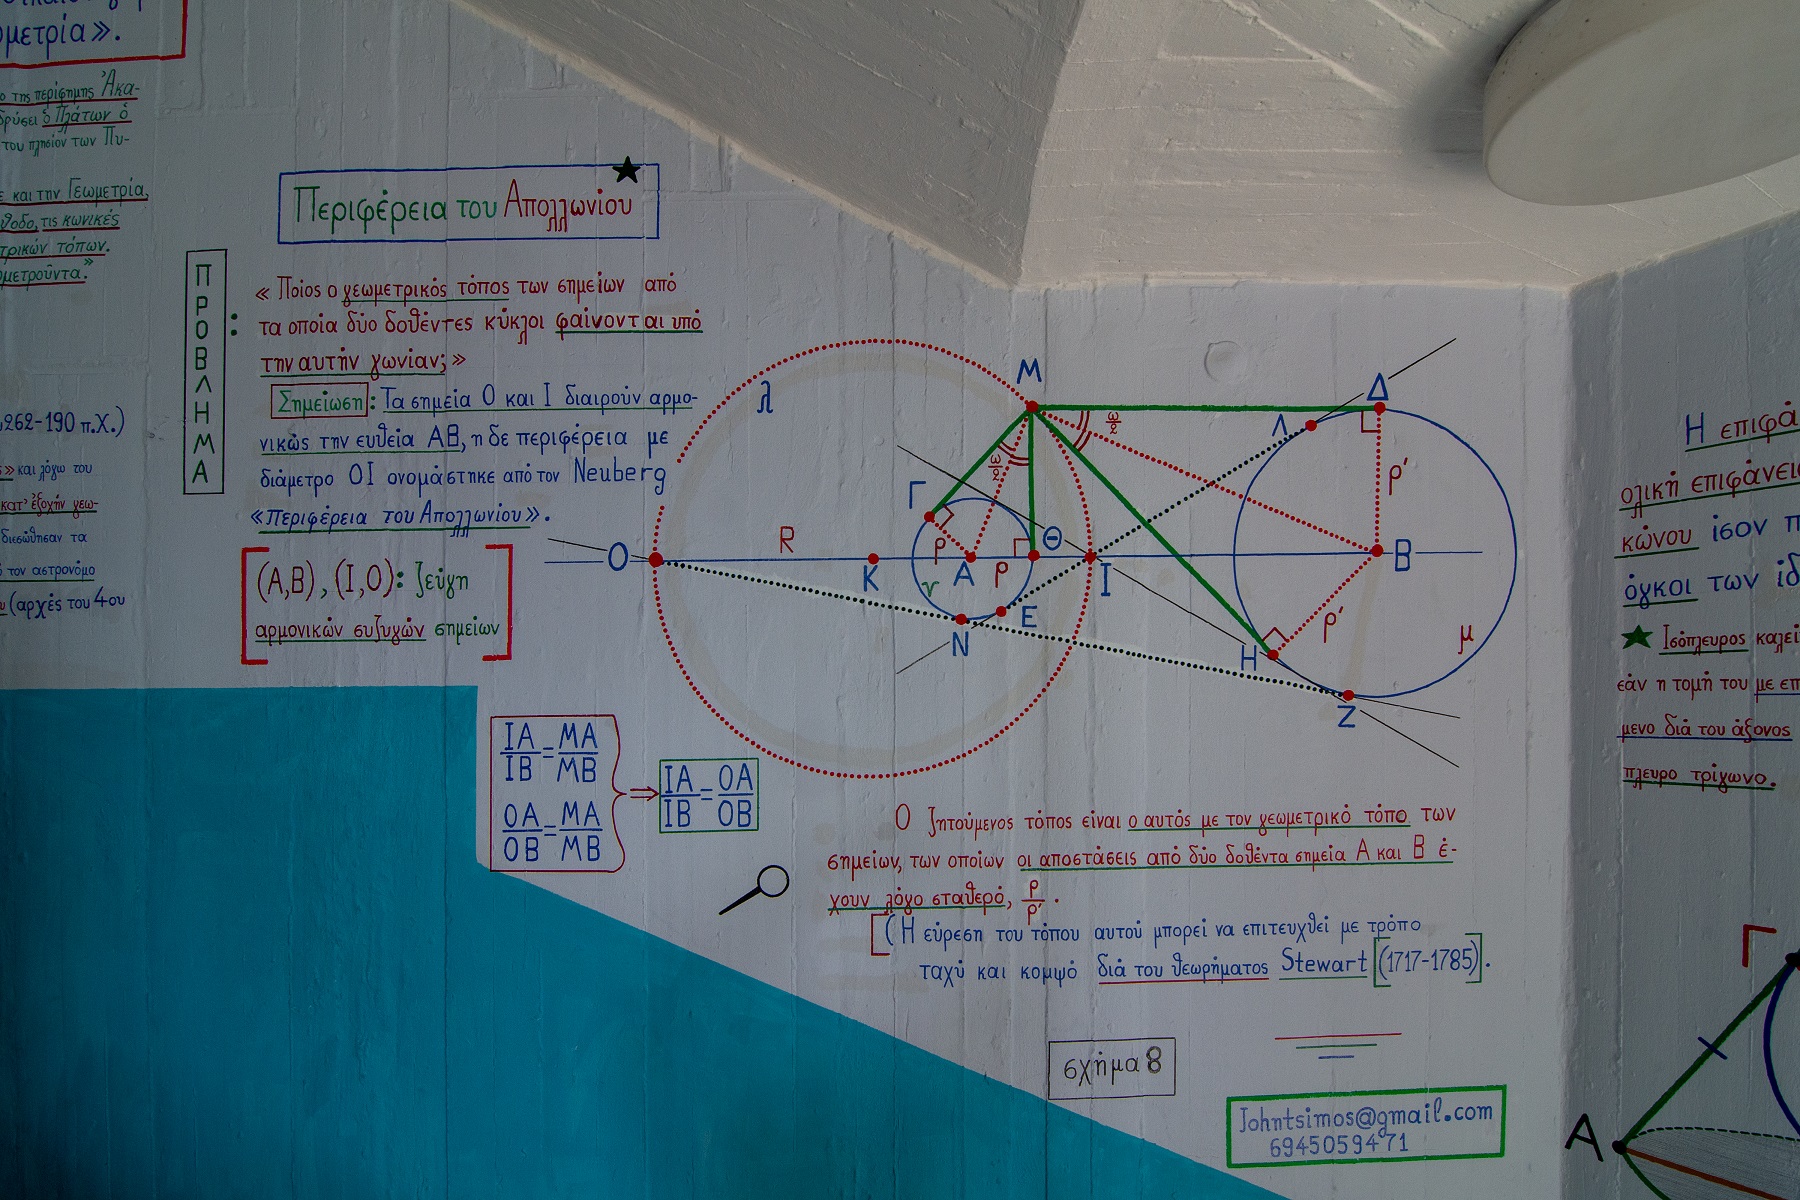 ομετρία».
ο της περίφημης Ἀκα-
δρύσει ὁ Πλάτων ὁ
του πλησίον των Πυ-
ε και την Γεωμετρία,
θοδο, τις κωνικές
τρικών τόπων.
ωμετροῦντα."
262-190 π.Χ.)
» και λόγω του
κατ' ἐξοχήν γεω-
διεσώθησαν τα
τον αστρονόμο
(αρχές του 4ου
Περιφέρεια του Απολλωνίου
ΠΡΟΒΛΗΜΑ :
« Ποίος ο γεωμετρικός τόπος των σημείων από
τα οποία δύο δοθέντες κύκλοι φαίνονται υπό
την αυτήν γωνίαν; »
Σημείωση : Τα σημεία Ο και Ι διαιρούν αρμο-
νικώς την ευθεία ΑΒ, η δε περιφέρεια με
διάμετρο ΟΙ ονομάστηκε από τον Neuberg
«Περιφέρεια του Απολλωνίου».
(Α,Β) , (Ι,Ο): ζεύγη
αρμονικών συζυγών σημείων
λ
Μ
Δ
Λ
ω/2
ω/2
Γ
Θ
ρ'
Ο
R
Κ
ρ
Α
ρ
Ι
Β
ν
Ν
Ε
Η
ρ'
μ
Ζ
ΙΑ/ΙΒ = ΜΑ/ΜΒ
ΟΑ/ΟΒ = ΜΑ/ΜΒ
⇒ ΙΑ/ΙΒ = ΟΑ/ΟΒ
Ο ζητούμενος τόπος είναι ο αυτός με τον γεωμετρικό τόπο των
σημείων, των οποίων οι αποστάσεις από δύο δοθέντα σημεία Α και Β έ-
χουν λόγο σταθερό, ρ/ρ' .
(Η εύρεση του τόπου αυτού μπορεί να επιτευχθεί με τρόπο
ταχύ και κομψό διά του θεωρήματος Stewart [(1717-1785)].
σχήμα 8
Johntsimos@gmail.com
6945059471
Η επιφά
ολική επιφάνει
κώνου ίσον π
όγκοι των ίδ
Ισόπλευρος καλεί
εάν η τομή του με επ
μενο διά του άξονος
πλευρο τρίγωνο.
Γ
Α